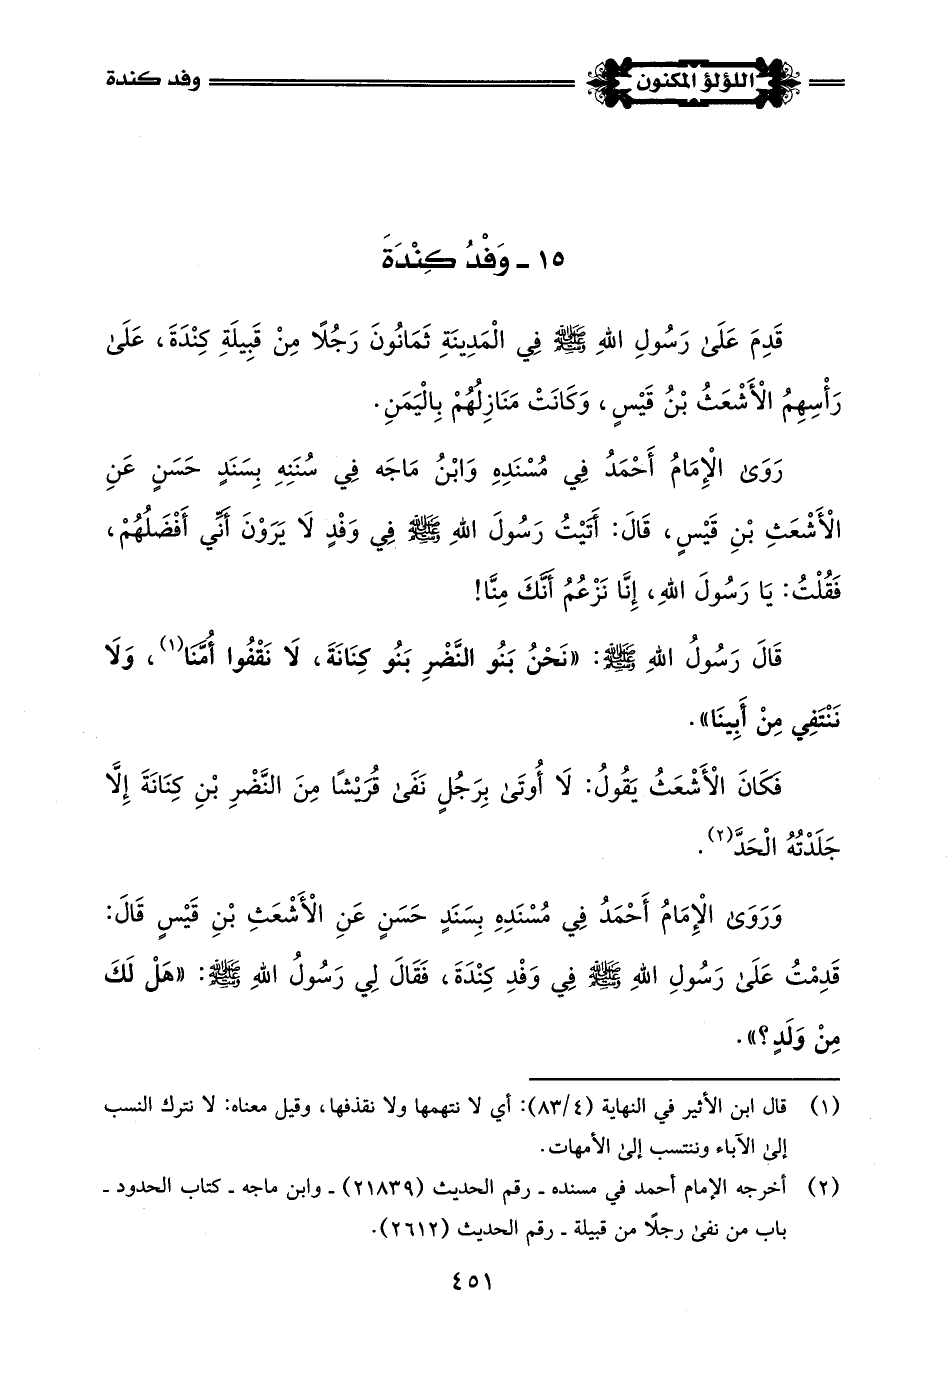 اللؤلؤ المكنون
وفد كندة
١٥ - وَفْدُ كِنْدَةَ
قَدِمَ عَلَىٰ رَسُولِ اللهِ ﷺ فِي الْمَدِينَةِ ثَمَانُونَ رَجُلًا مِنْ قَبِيلَةِ كِنْدَةَ، عَلَىٰ
رَأْسِهِمُ الْأَشْعَثُ بْنُ قَيْسٍ، وَكَانَتْ مَنَازِلُهُمْ بِالْيَمَنِ.
رَوَىٰ الْإِمَامُ أَحْمَدُ فِي مُسْنَدِهِ وَابْنُ مَاجَه فِي سُنَنِهِ بِسَنَدٍ حَسَنٍ عَنِ
الْأَشْعَثِ بْنِ قَيْسٍ، قَالَ: أَتَيْتُ رَسُولَ اللهِ ﷺ فِي وَفْدٍ لَا يَرَوْنَ أَنِّي أَفْضَلُهُمْ،
فَقُلْتُ: يَا رَسُولَ اللهِ، إِنَّا نَزْعُمُ أَنَّكَ مِنَّا!
قَالَ رَسُولُ اللهِ ﷺ: «نَحْنُ بَنُو النَّضْرِ بَنُو كِنَانَةَ، لَا نَقْفُوا أُمَّنَا(١)، وَلَا
نَنْتَفِي مِنْ أَبِينَا».
فَكَانَ الْأَشْعَثُ يَقُولُ: لَا أُوتَىٰ بِرَجُلٍ نَفَىٰ قُرَيْشًا مِنَ النَّضْرِ بْنِ كِنَانَةَ إِلَّا
جَلَدْتُهُ الْحَدَّ(٢).
وَرَوَىٰ الْإِمَامُ أَحْمَدُ فِي مُسْنَدِهِ بِسَنَدٍ حَسَنٍ عَنِ الْأَشْعَثِ بْنِ قَيْسٍ قَالَ:
قَدِمْتُ عَلَىٰ رَسُولِ اللهِ ﷺ فِي وَفْدِ كِنْدَةَ، فَقَالَ لِي رَسُولُ اللهِ ﷺ: «هَلْ لَكَ
مِنْ وَلَدٍ؟».
(١) قال ابن الأثير في النهاية (٨٣/٤): أي لا نتهمها ولا نقذفها، وقيل معناه: لا نترك النسب
إلىٰ الآباء وننتسب إلىٰ الأمهات.
(٢) أخرجه الإمام أحمد في مسنده - رقم الحديث (٢١٨٣٩) - وابن ماجه - كتاب الحدود -
باب من نفىٰ رجلًا من قبيلة - رقم الحديث (٢٦١٢).
٤٥١